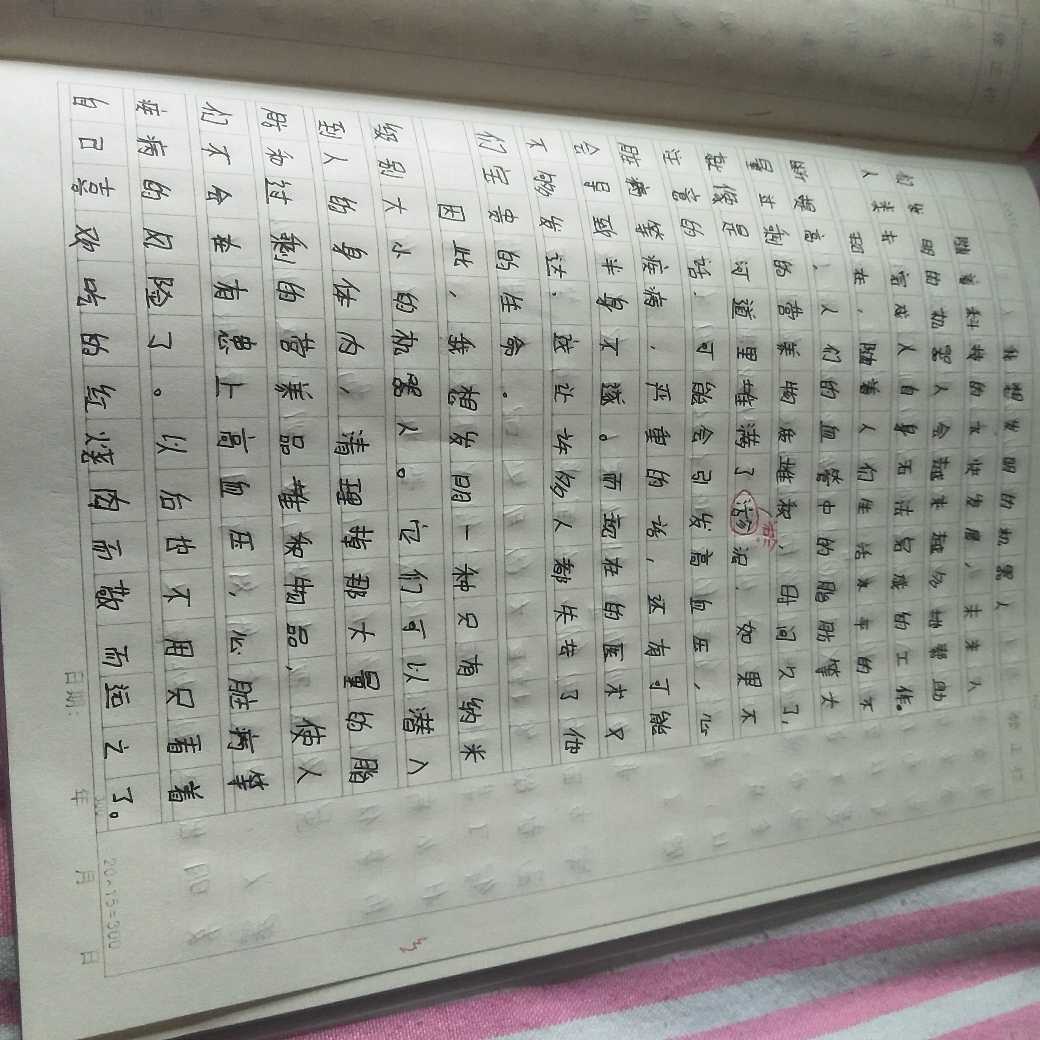 我想发明的机器人
随着科技的飞快发展，未来人
们发明的机器人会越来越多地帮助
人类去完成人自身无法完成的工作。
现在，随着人们生活水平的不
断提高，人们的血管中的脂肪等大
量过剩的营养物质堆积，日间久了，
就像是河道里堆满了淤泥，如果不
注意的话，可能会引发高血压，心
脏病等疾病，严重的话，还有可能
会导致半身不遂。而现在的医术又
不够发达，这让许多人都失去了他
们宝贵的生命。
因此，我想发明一种只有纳米
级别大小的机器人。它们可以潜入
到人的身体内，清理掉那大量的脂
肪和过剩的营养品堆积物品，使人
们不会在有患上高血压，心脏病等
疾病的风险了。以后也不用只看着
自己喜欢吃的红烧肉而敬而远之了。
日期： 年 月 日
20×15=300